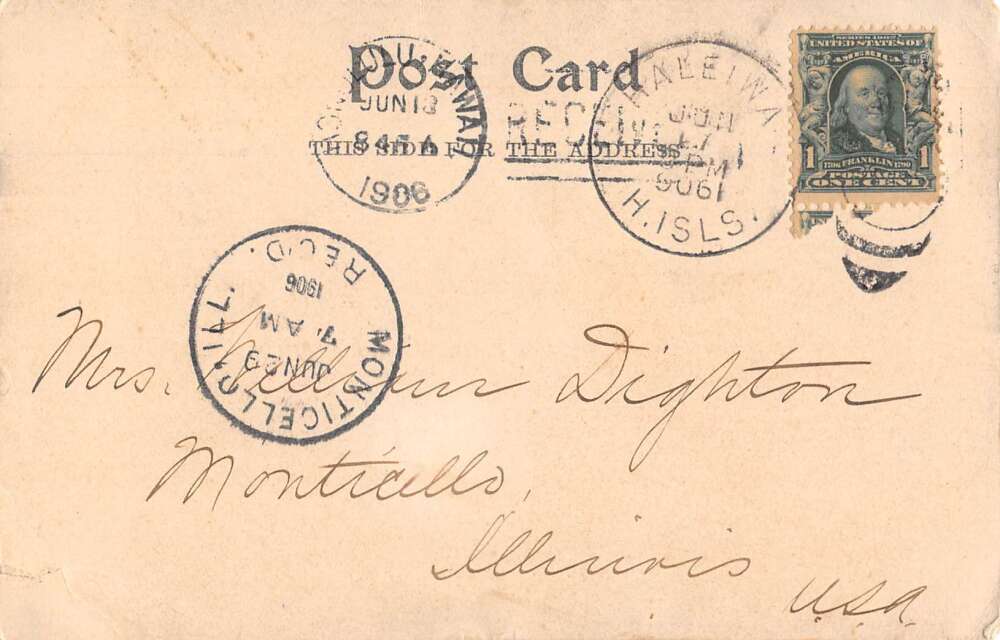 Post Card
THIS SIDE FOR THE ADDRESS
HONOLULU, HAWAII
JUN 18
1906
RECEIV
HALEIWA
JUN
17
PM
1906
H. ISLS.
SERIES 1902
UNITED STATES OF
AMERICA
1 1706 FRANKLIN 1790 1
POSTAGE
ONE CENT
MONTICELLO, ILL.
JUN 29
7 AM
1906
REC'D.
Mrs. William Dighton
Monticello,
Illinois
U.S.A.